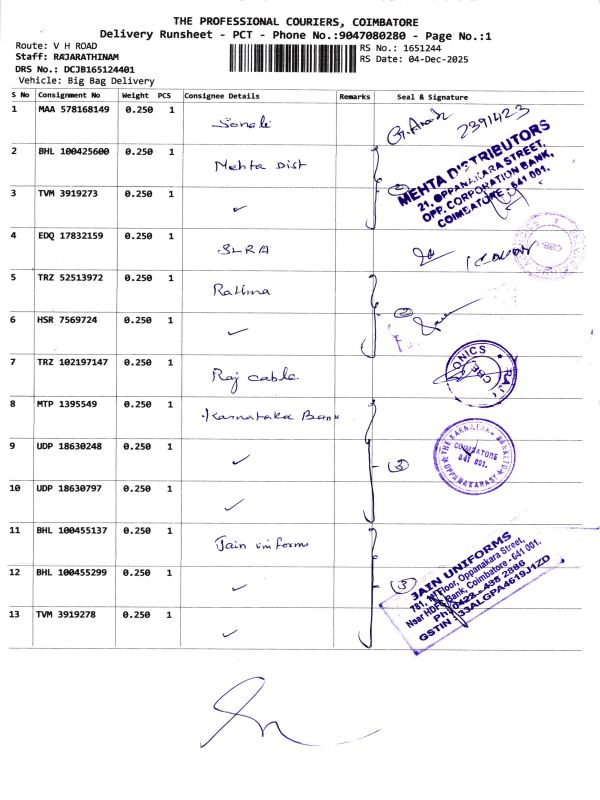 THE PROFESSIONAL COURIERS, COIMBATORE
Delivery Runsheet - PCT - Phone No.:9047080280 - Page No.:1
Route: V H ROAD
Staff: RAJARATHINAM
DRS No.: DCJB165124401
Vehicle: Big Bag Delivery
RS No.: 1651244
RS Date: 04-Dec-2025
S No Consignment No Weight PCS Consignee Details Remarks Seal & Signature
1 MAA 578168149 0.250 1 Sonali 2391423
2 BHL 100425600 0.250 1 Mehta Dist
MEHTA DISTRIBUTORS
21, OPPANAKARA STREET,
OPP. CORPORATION BANK,
COIMBATORE - 641 001.
3 TVM 3919273 0.250 1 ✓ 2
4 EDQ 17832159 0.250 1 SLRA
5 TRZ 52513972 0.250 1 Rathna
6 HSR 7569724 0.250 1 ✓ 2
7 TRZ 102197147 0.250 1 Raj cable
RAJ
ONICS
CBE
8 MTP 1395549 0.250 1 Karnataka Bank
9 UDP 18630248 0.250 1 ✓ 3
THE KARNATAKA BANK LTD
COIMBATORE
641 001.
OPPANAKARA ST
10 UDP 18630797 0.250 1 ✓
11 BHL 100455137 0.250 1 Jain uniforms
12 BHL 100455299 0.250 1 ✓ 3
JAIN UNIFORMS
781, Floor, Oppanakara Street,
Near HDFC Bank, Coimbatore - 641 001.
Ph: 0422 - 435 2886
GSTIN : 33ALGPA4619J1ZD
13 TVM 3919278 0.250 1 ✓